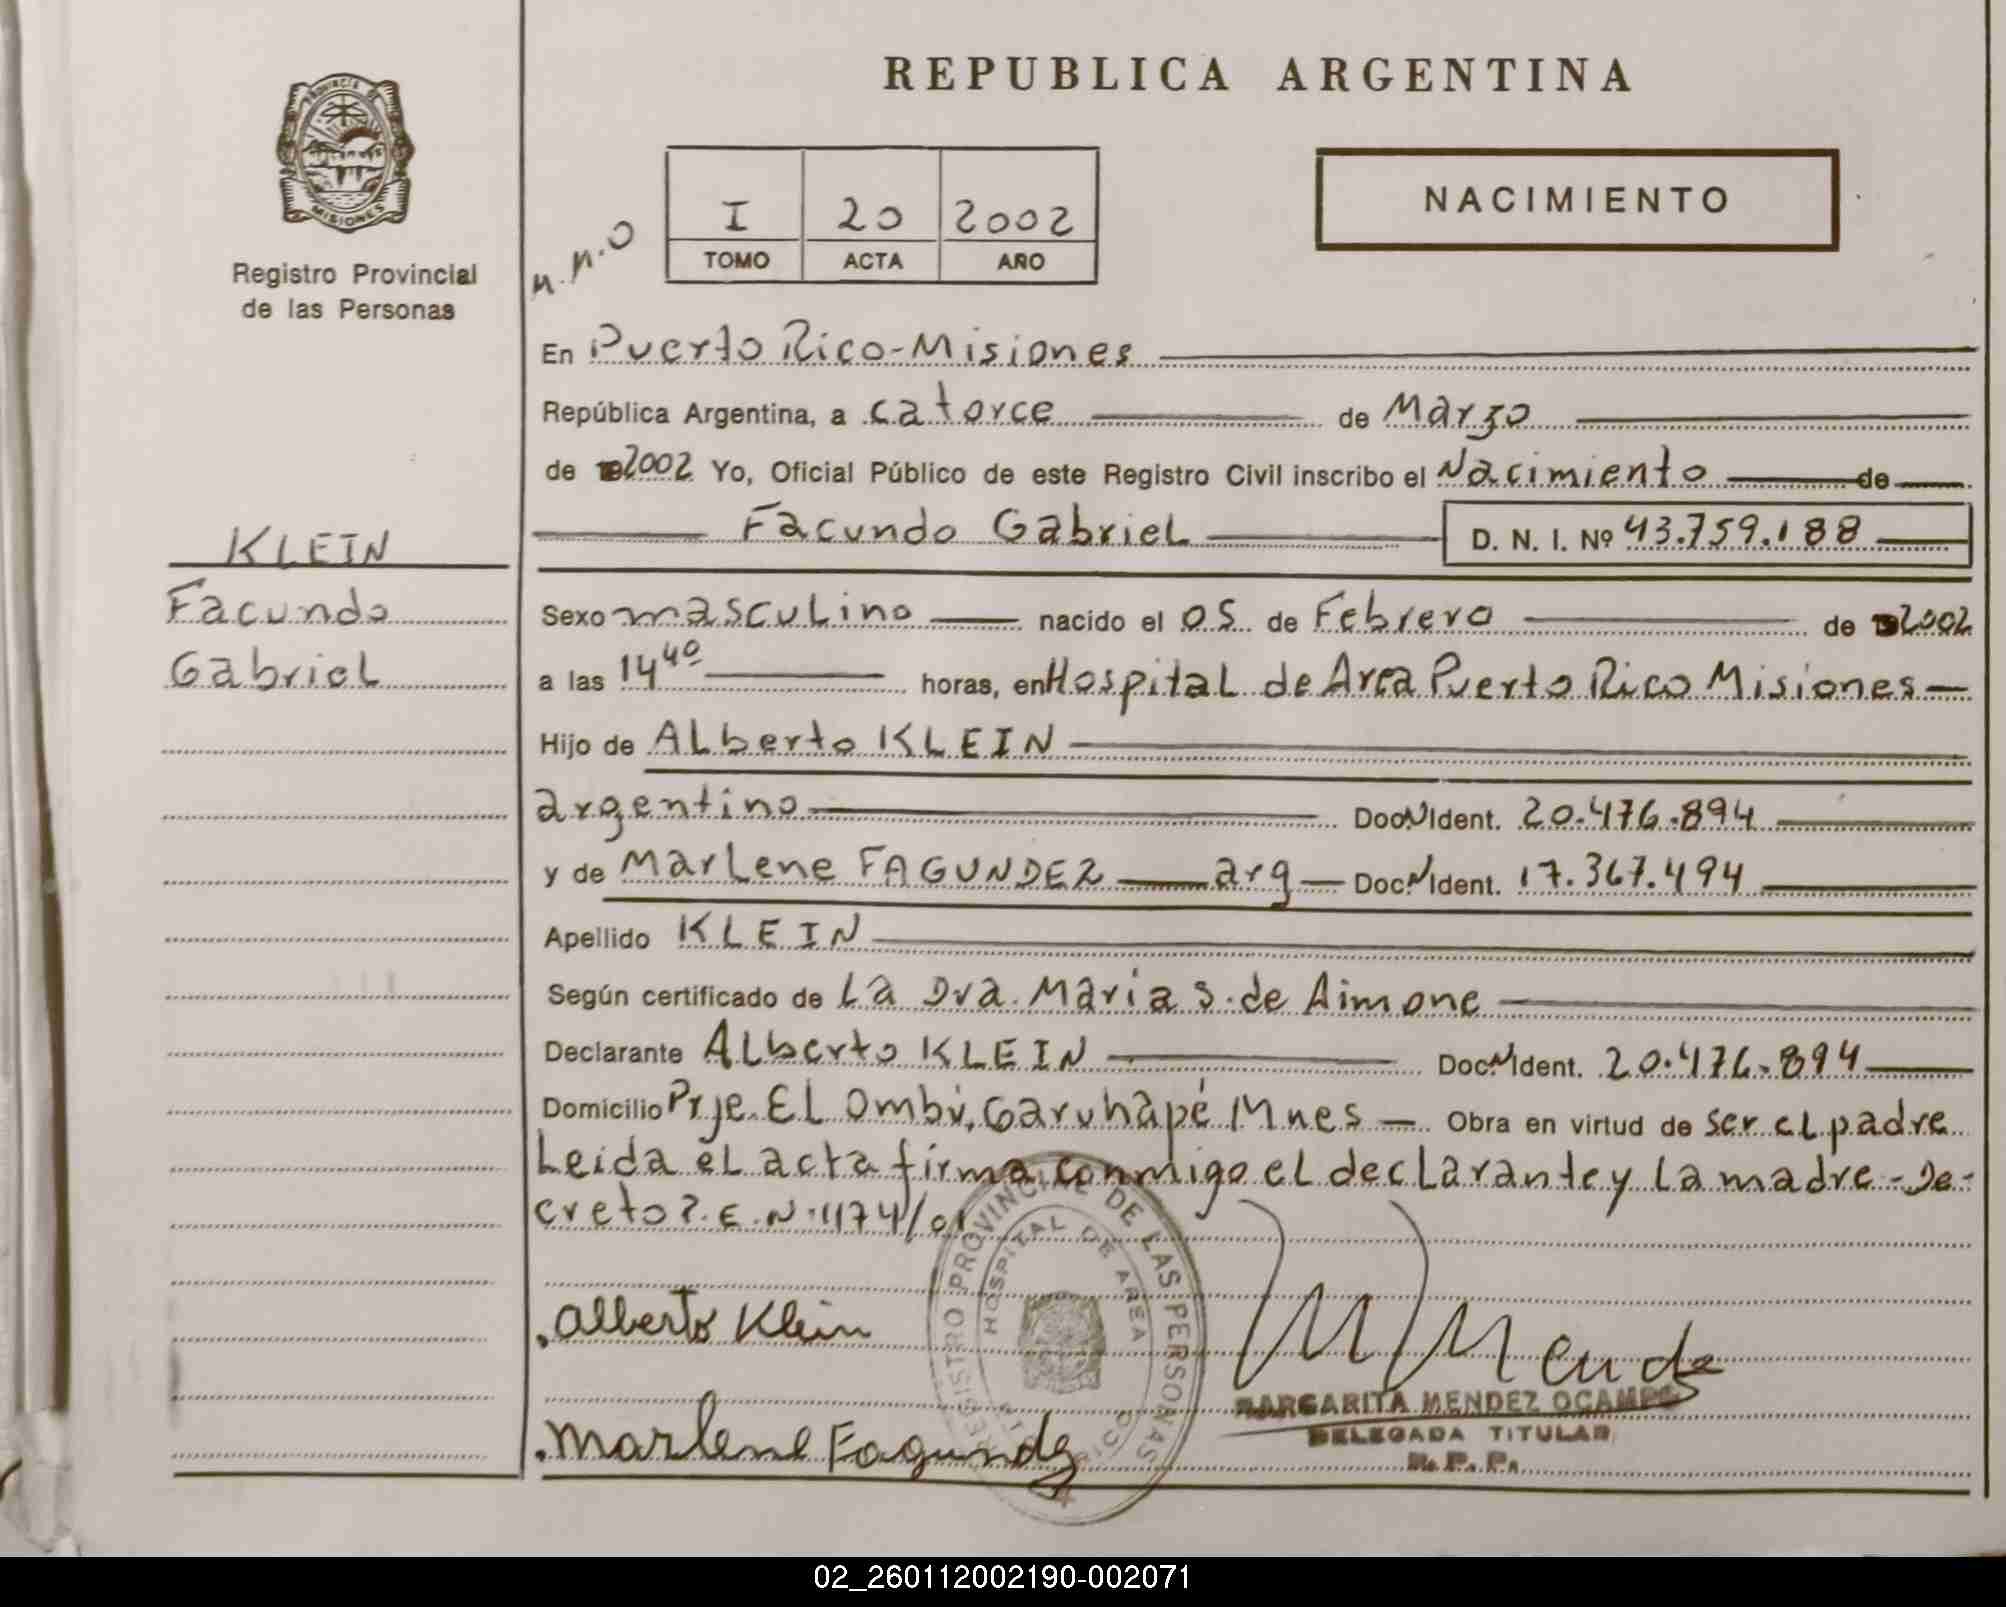 REPUBLICA ARGENTINA
PROVINCIA DE
MISIONES
Registro Provincial
de las Personas
n.n.o
I 20 2002
TOMO ACTA AÑO
NACIMIENTO
En Puerto Rico-Misiones
República Argentina, a catorce de Marzo
de 2002 Yo, Oficial Público de este Registro Civil inscribo el Nacimiento de
Facundo Gabriel D. N. I. Nº 43.759.188
KLEIN
Facundo
Gabriel
Sexo masculino nacido el 05 de Febrero de 2002
a las 14 40 horas, en Hospital de Area Puerto Rico Misiones
Hijo de Alberto KLEIN
argentino Doc.N Ident. 20.476.894
y de Marlene FAGUNDEZ arg Doc.N Ident. 17.367.494
Apellido KLEIN
Según certificado de La Dra. Maria S. de Aimone
Declarante Alberto KLEIN Doc.N Ident. 20.476.894
Domicilio Prje. El Ombú, Garuhapé Mnes Obra en virtud de ser el padre
Leida el acta firma conmigo el declarante y la madre - De-
creto P.E.N. 1174/01
REGISTRO PROVINCIAL DE LAS PERSONAS
HOSPITAL DE AREA
PTO RICO
Alberto Klein
Marlene Fagundez
MARGARITA MENDEZ OCAMPO
DELEGADA TITULAR
R. P. P.
02_260112002190-002071